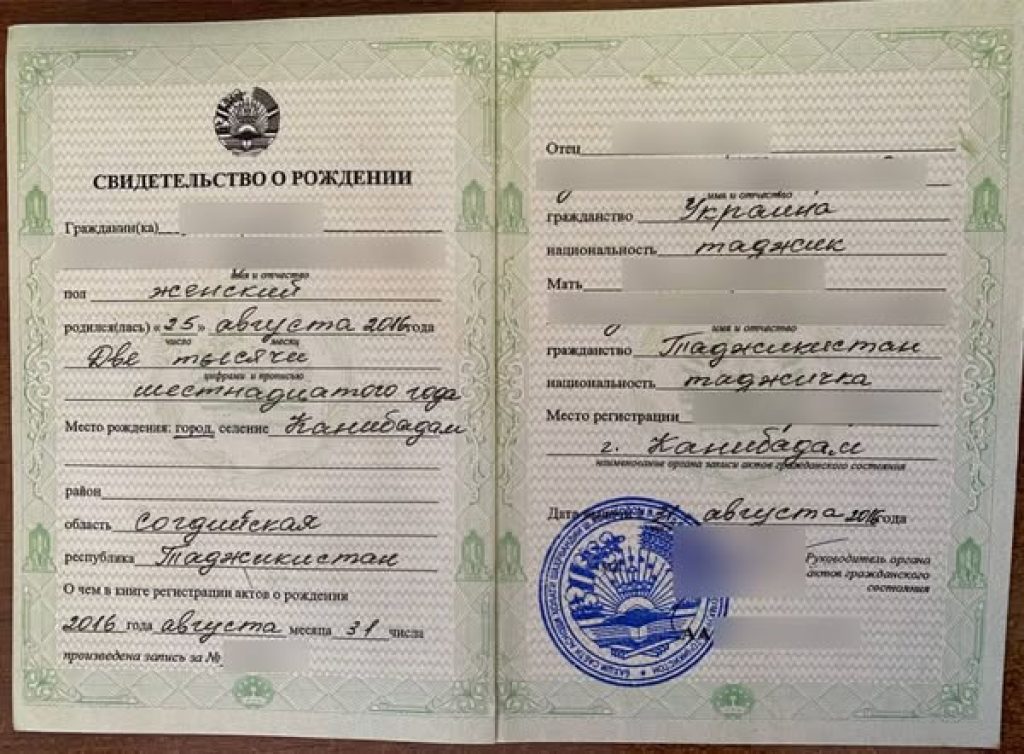 СВИДЕТЕЛЬСТВО О РОЖДЕНИИ
Гражданин(ка)
имя и отчество
пол женский
родился(лась) « 25 » августа 2016 года
число месяц
Две тысячи
цифрами и прописью
шестнадцатого года
Место рождения: город, селение Канибадам
район
область Согдийская
республика Таджикистан
О чем в книге регистрации актов о рождении
2016 года августа месяца 31 числа
произведена запись за №
Отец
имя и отчество
гражданство Украина
национальность таджик
Мать
имя и отчество
гражданство Таджикистан
национальность таджичка
Место регистрации
г. Канибадам
наименование органа записи актов гражданского состояния
Дата 31 августа 2016 года
Руководитель органа
актов гражданского
состояния